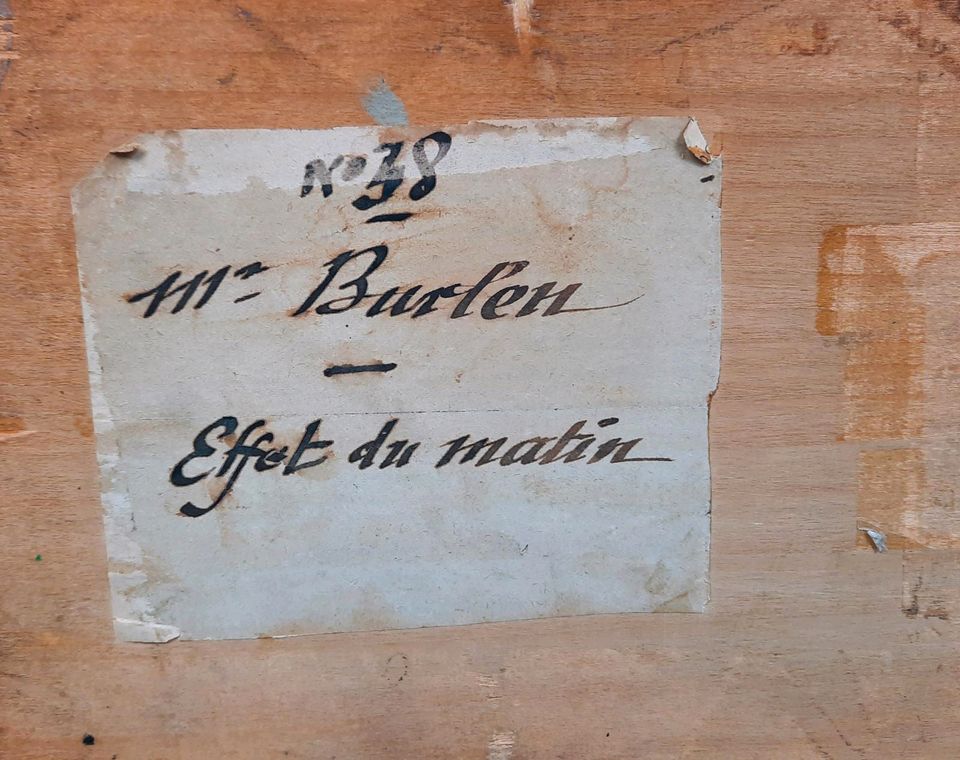 No 38
Mr Burlen
Effet du matin